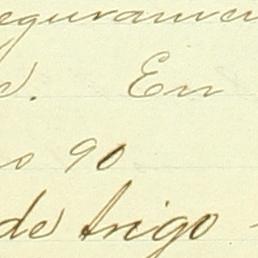 eguramen
. En
o 90
de trigo -